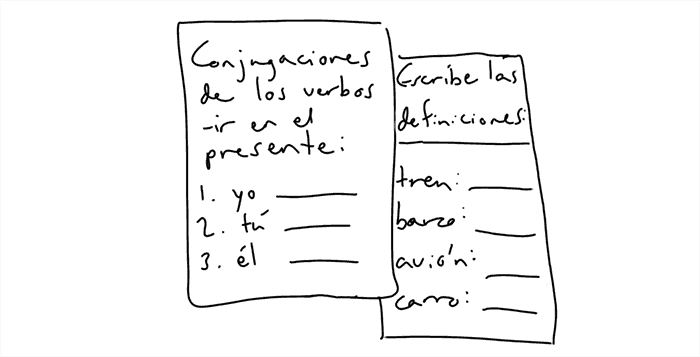 Conjugaciones
de los verbos
-ir en el
presente:
1. yo
2. tú
3. él
Escribe las
definiciones:
tren:
barco:
avión:
carro: